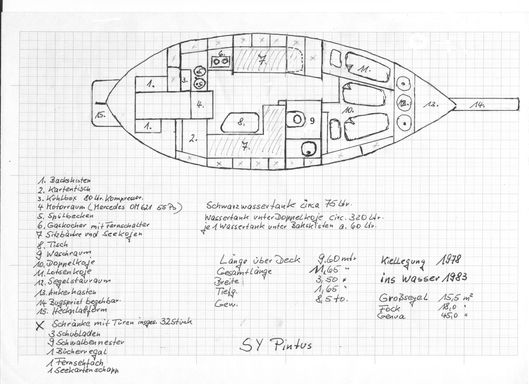 1.
3.
6.
7.
11.
4.
8.
9
10.
12.
13.
14.
15.
1.
2.
7.
1. Backskisten
2. Kartentisch
3. Kühlbox 80 Ltr. Kompressor.
4 Motorraum (Mercedes OM 621 55 Ps)
5. Spülbecken
6. Gaskocher mit Fernschalter
7 Sitzbänke und Seekojen
8. Tisch
9 Waschraum
10. Doppelkoje
11. Lotsenkoje
12. Segelstauraum
13. Ankerkasten
14 Bugspriet begehbar
15. Heckplatform
X Schränke mit Türen insges. 32 Stück
3 Schubladen
9 Schwalbennester
1 Bücherregal
1 Fernsehfach
1 Seekartenschapp
Schwarzwassertank circa 75 Ltr.
Wassertank unter Doppelkoje circ. 320 Ltr.
je 1 Wassertank unter Bakskisten a. 60 Ltr.
Länge über Deck 9,60 mtr.
Gesamtlänge 11,65 "
Breite 3,50 "
Tiefg. 1,65 "
Gew. 8,5 to.
Kiellegung 1978
ins Wasser 1983
Großsegal 15,5 m²
Fock 18,0 "
Genua 45,0 "
SY Pintus